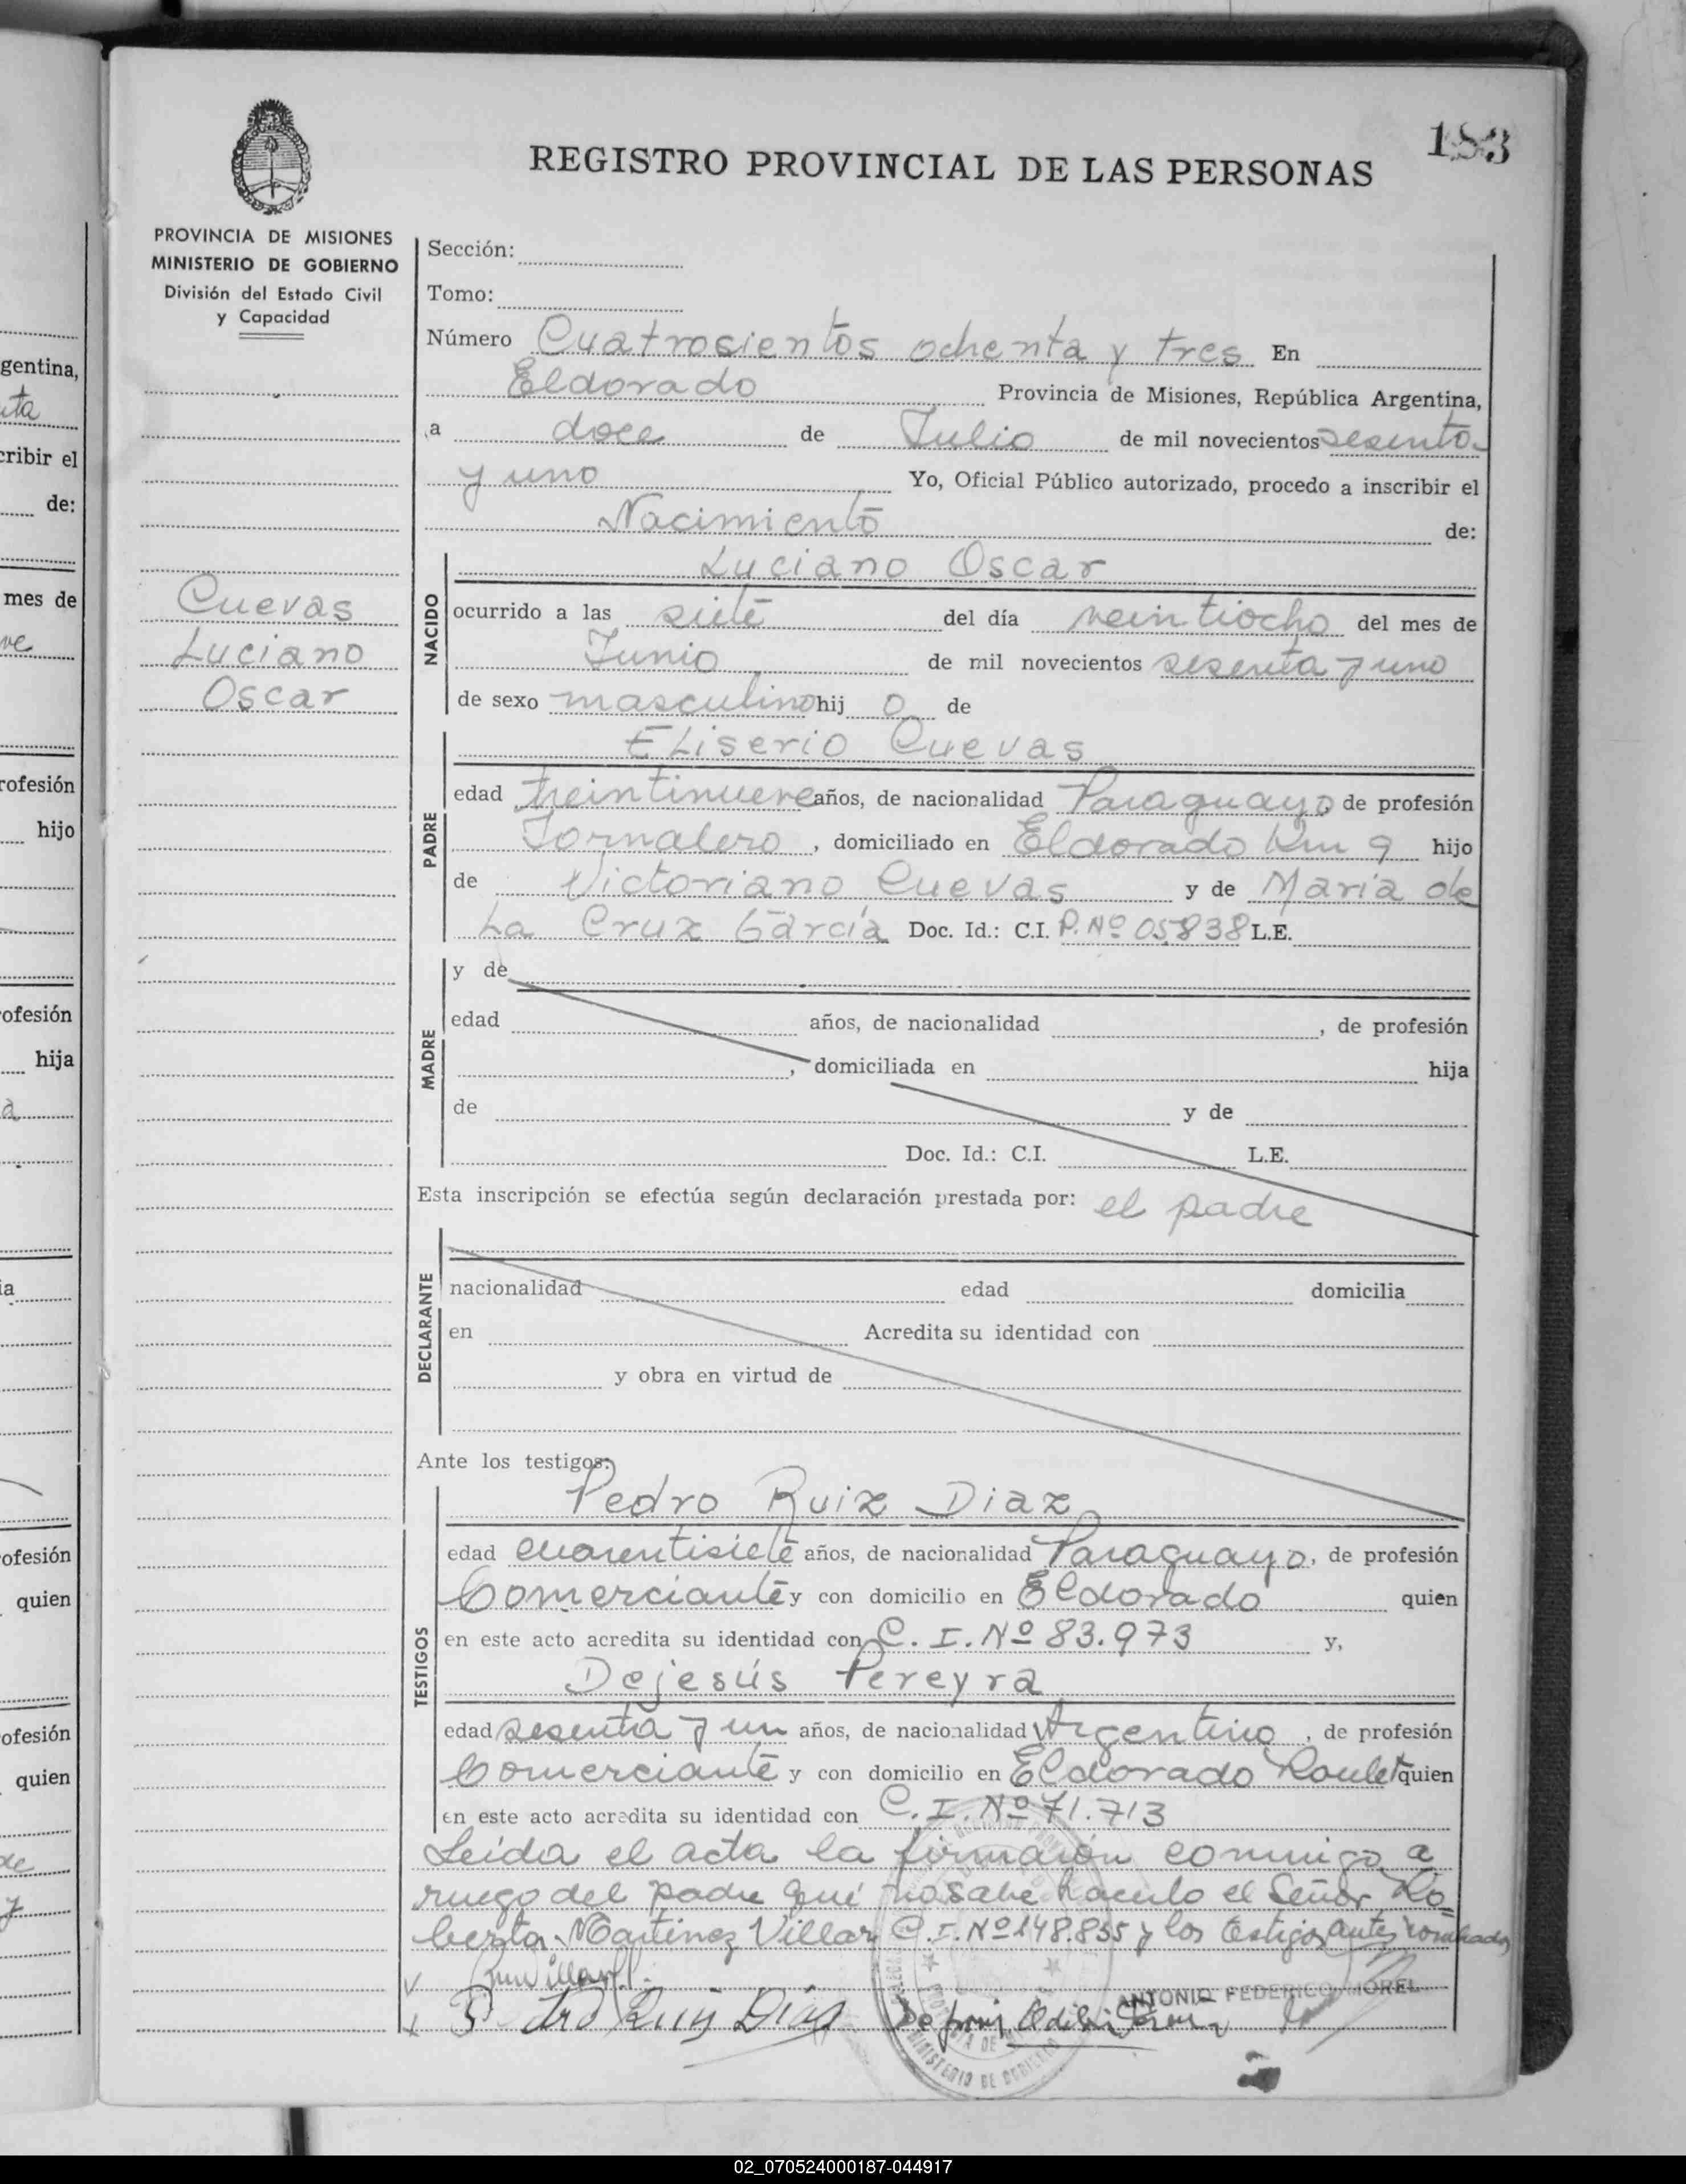 183
REGISTRO PROVINCIAL DE LAS PERSONAS
PROVINCIA DE MISIONES
MINISTERIO DE GOBIERNO
División del Estado Civil
y Capacidad
Sección:
Tomo:
Número Cuatrosientos ochenta y tres En
Eldorado Provincia de Misiones, República Argentina,
a doce de Julio de mil novecientos sesenta
y uno Yo, Oficial Público autorizado, procedo a inscribir el
Nacimiento de:
Cuevas
Luciano
Oscar
NACIDO
Luciano Oscar
ocurrido a las siete del día veintiocho del mes de
Junio de mil novecientos sesenta y uno
de sexo masculino hij o de
PADRE
Eliserio Cuevas
edad treintinueve años, de nacionalidad Paraguayo, de profesión
Jornalero, domiciliado en Eldorado Km 9 hijo
de Victoriano Cuevas y de María de
La Cruz García Doc. Id.: C.I. P. Nº 05838 L.E.
MADRE
y de
edad años, de nacionalidad , de profesión
, domiciliada en hija
de y de
Doc. Id.: C.I. L.E.
Esta inscripción se efectúa según declaración prestada por: el padre
DECLARANTE
nacionalidad edad domicilia
en Acredita su identidad con
y obra en virtud de
Ante los testigos:
TESTIGOS
Pedro Ruiz Diaz
edad cuarentisiete años, de nacionalidad Paraguayo, de profesión
Comerciante y con domicilio en Eldorado quien
en este acto acredita su identidad con C. I. Nº 83.973 y,
Dejesús Pereyra
edad sesenta y un años, de nacionalidad Argentino, de profesión
Comerciante y con domicilio en Eldorado Roulet quien
en este acto acredita su identidad con C. I. Nº 71.713
Leida el acta la firmaron conmigo a
ruego del padre qué no sabe hacerlo el Señor Ro
berto Martinez Villar C.I. Nº 148.855 y los testigos antes nombrados
Pedro Ruiz Diaz
ANTONIO FEDERICO MOREL
MINISTERIO DE GOBIERNO
gentina,
cribir el
de:
mes de
rofesión
hijo
ofesión
hija
ofesión
quien
ofesión
quien
02_070524000187-044917